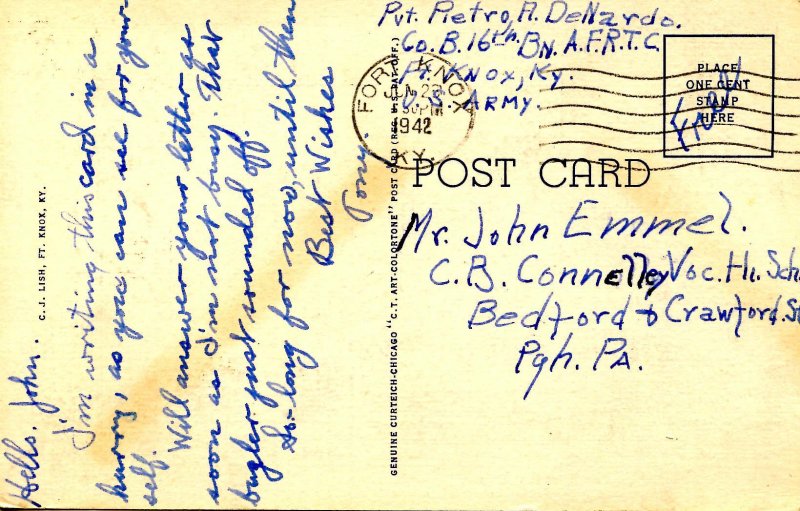 Hello, John.
I'm writing this card in a
hurry, as you can see for your-
self.
Will answer your letter as
soon as I'm not busy. That
bugler just sounded off.
So-long for now, until then
Best Wishes
Tony.
C. J. LISH, FT. KNOX, KY.
GENUINE CURTEICH-CHICAGO "C.T. ART-COLORTONE" POST CARD (REG. U.S. PAT. OFF.)
Pvt. Pietro, A. DeNardo.
Co. B. 16th Bn. A.F.R.T.C.
Ft. Knox, Ky.
U.S. ARMY.
FORT KNOX
JUN 23
PM
1942
KY.
PLACE
ONE CENT
STAMP
HERE
Free
POST CARD
Mr. John Emmel.
C. B. Connelley Voc. Hi. Sch
Bedford & Crawford. St
Pgh. PA.